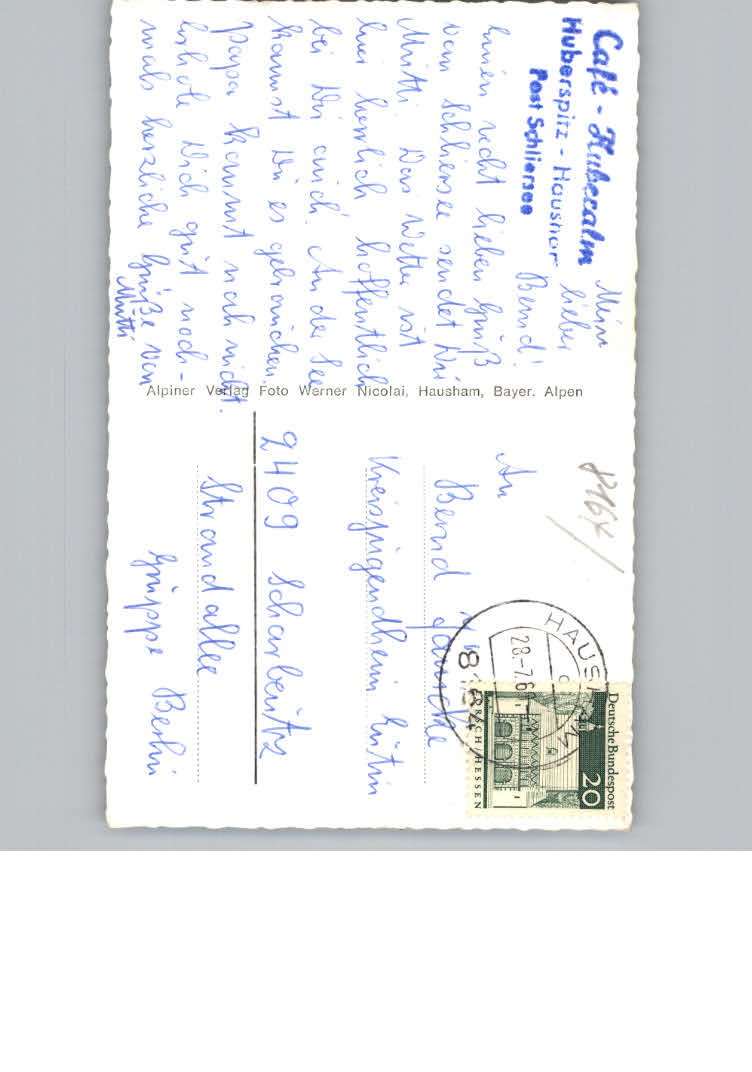 Café - Huberalm
Huberspitz - Hausham
Post Schliersee
Mein
lieber
Bernd!
Einen recht lieben Gruß
vom Schliersee sendet Dir
Mutti. Das Wetter ist
hier herrlich hoffentlich
bei Dir auch. An der See
kannst Du es gebrauchen.
Papa kommt noch nicht.
Erhole Dich gut noch-
mals herzliche Grüße von
Mutti
Alpiner Verlag Foto Werner Nicolai, Hausham, Bayer. Alpen
816X/
An
Bernd
Kreisjugendheim Eutin
2409 Scharbeutz
Strandallee
Gruppe Berlin
HAUSHAM
28.-7.6
8164
Deutsche Bundespost
20
LORSCH/HESSEN